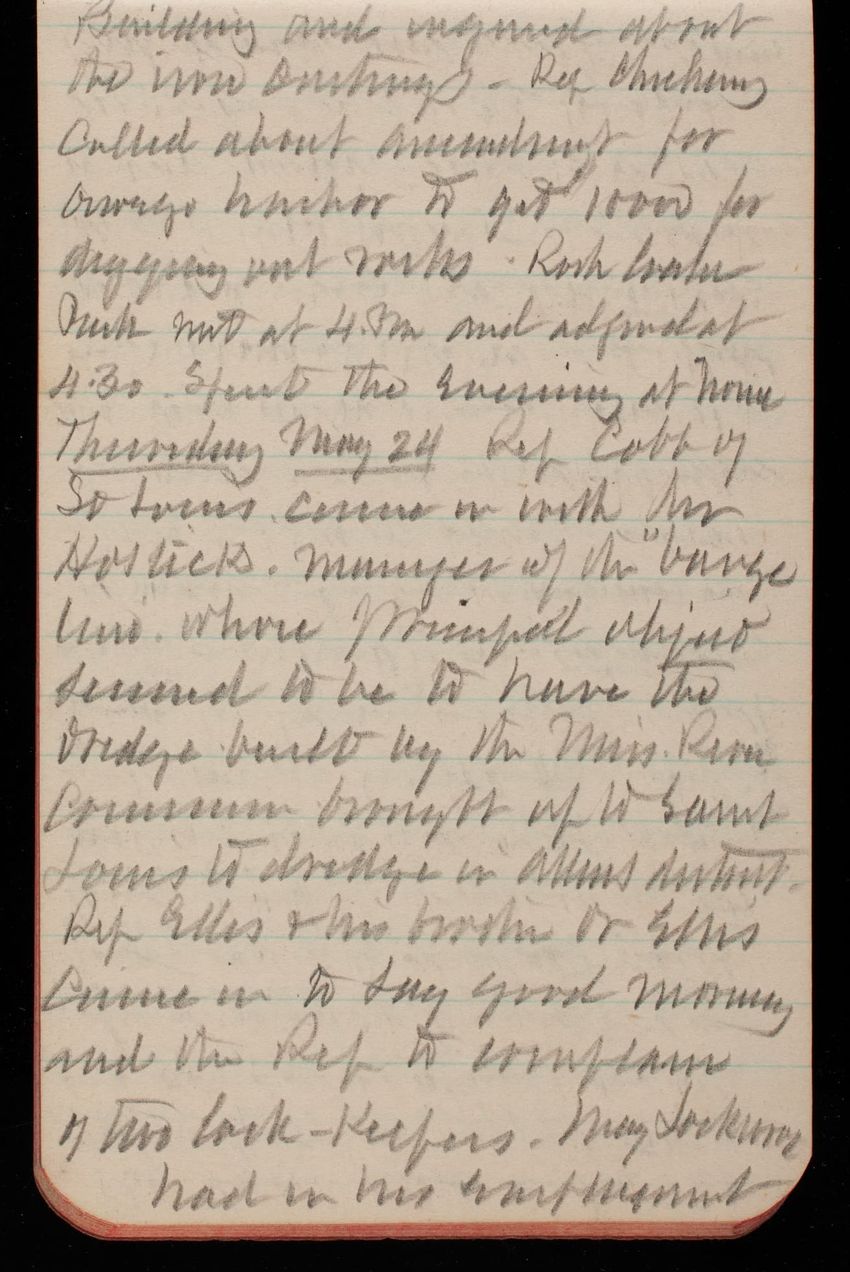 Building and inquired about
the iron castings - Rep Chickering
Called about amendment for
Oswego harbor to get 1000 for
digging out rocks. Rock Creek
Park met at 4. Pm and adjrnd at
4.30. Spent the Evening at home
Thursday May 24 Rep Cobb of
St Louis came in with Mr
manager of the "barge
line. whose principal object
seemed to be to have the
dredge built by the Miss. River
Commission brought up to Saint
Louis to dredge in Allens district.
Rep Ellis & his brother Dr Ellis
Came in to say good morning
and the Rep to complain
of two lock-Keepers. May Lockwood
had in his employment